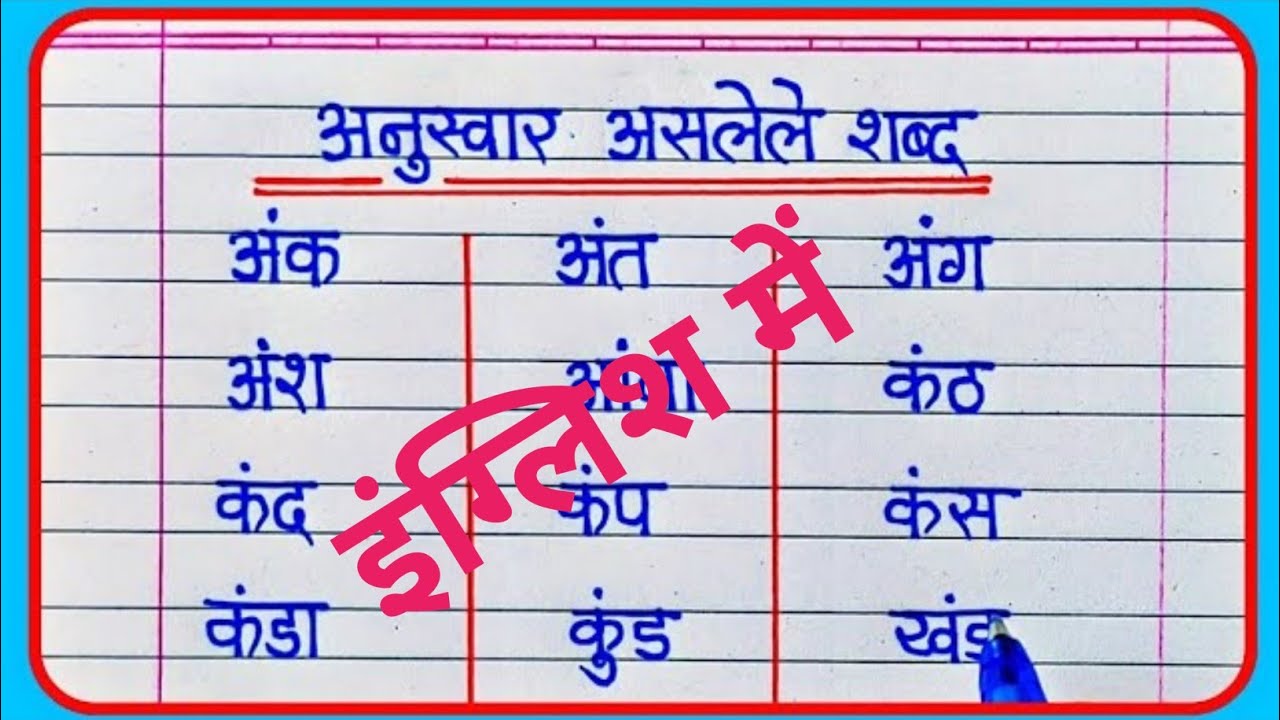 अनुस्वार असलेले शब्द
अंक अंत अंग
अंश कंठ
कंद कंप कंस
कंडा कुंड खंड
इंग्लिश में